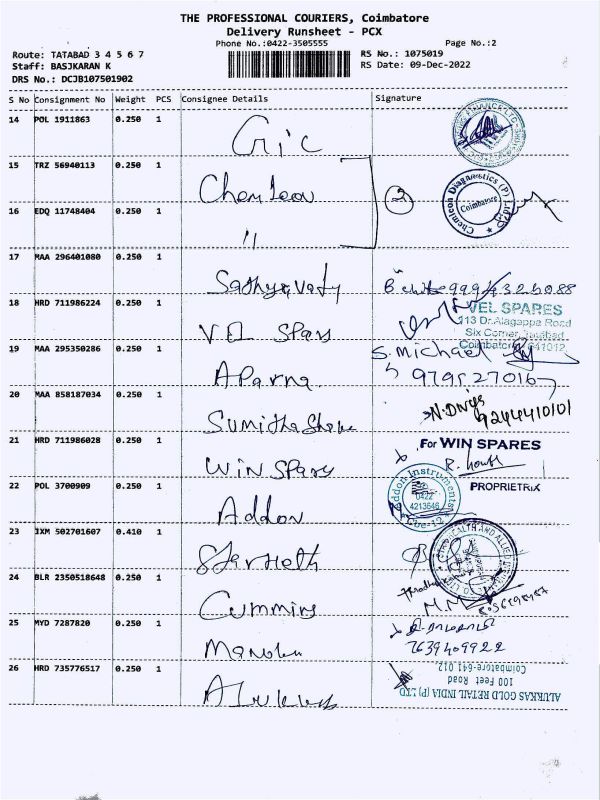 THE PROFESSIONAL COURIERS, Coimbatore
Delivery Runsheet - PCX
Phone No.:0422-3505555
Page No.:2
Route: TATABAD 3 4 5 6 7
RS No.: 1075019
Staff: BASJKARAN K
RS Date: 09-Dec-2022
DRS No.: DCJB107501902
S No Consignment No Weight PCS Consignee Details Signature
14 POL 1911863 0.250 1 Gric
15 TRZ 56940113 0.250 1 Chemleon
2
Chemleon Diagnostics (P) Ltd
Coimbatore
16 EDQ 11748404 0.250 1 "
17 MAA 296401080 0.250 1 Sathyavaty
18 HRD 711986224 0.250 1 VEL Spars
VEL SPARES
113 Dr.Alagappa Road
Six Corner, Tatabad
Coimbatore 641012
19 MAA 295350286 0.250 1 Aparna
S. Michael
20 MAA 858187034 0.250 1 Sumitha
9244410101
21 HRD 711986028 0.250 1 WIN Spars
For WIN SPARES
PROPRIETRIX
22 POL 3700909 0.250 1 Addon
Addon Instruments
0422
4213646
23 IXM 502701607 0.410 1
24 BLR 2350518648 0.250 1 Cummins
25 MYD 7287820 0.250 1
7639409922
26 HRD 735776517 0.250 1
ALUKKAS GOLD RETAIL INDIA (P) LTD
100 Feet Road
Coimbatore-641 012